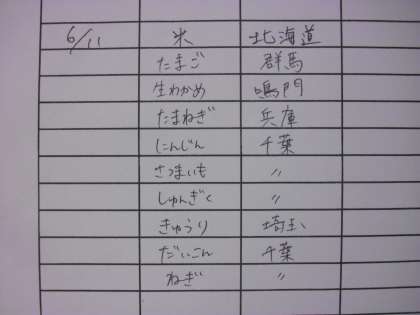 6/11 米 北海道
たまご 群馬
生わかめ 鳴門
たまねぎ 兵庫
にんじん 千葉
さつまいも 〃
しゅんぎく 〃
きゅうり 埼玉
だいこん 千葉
ねぎ 〃